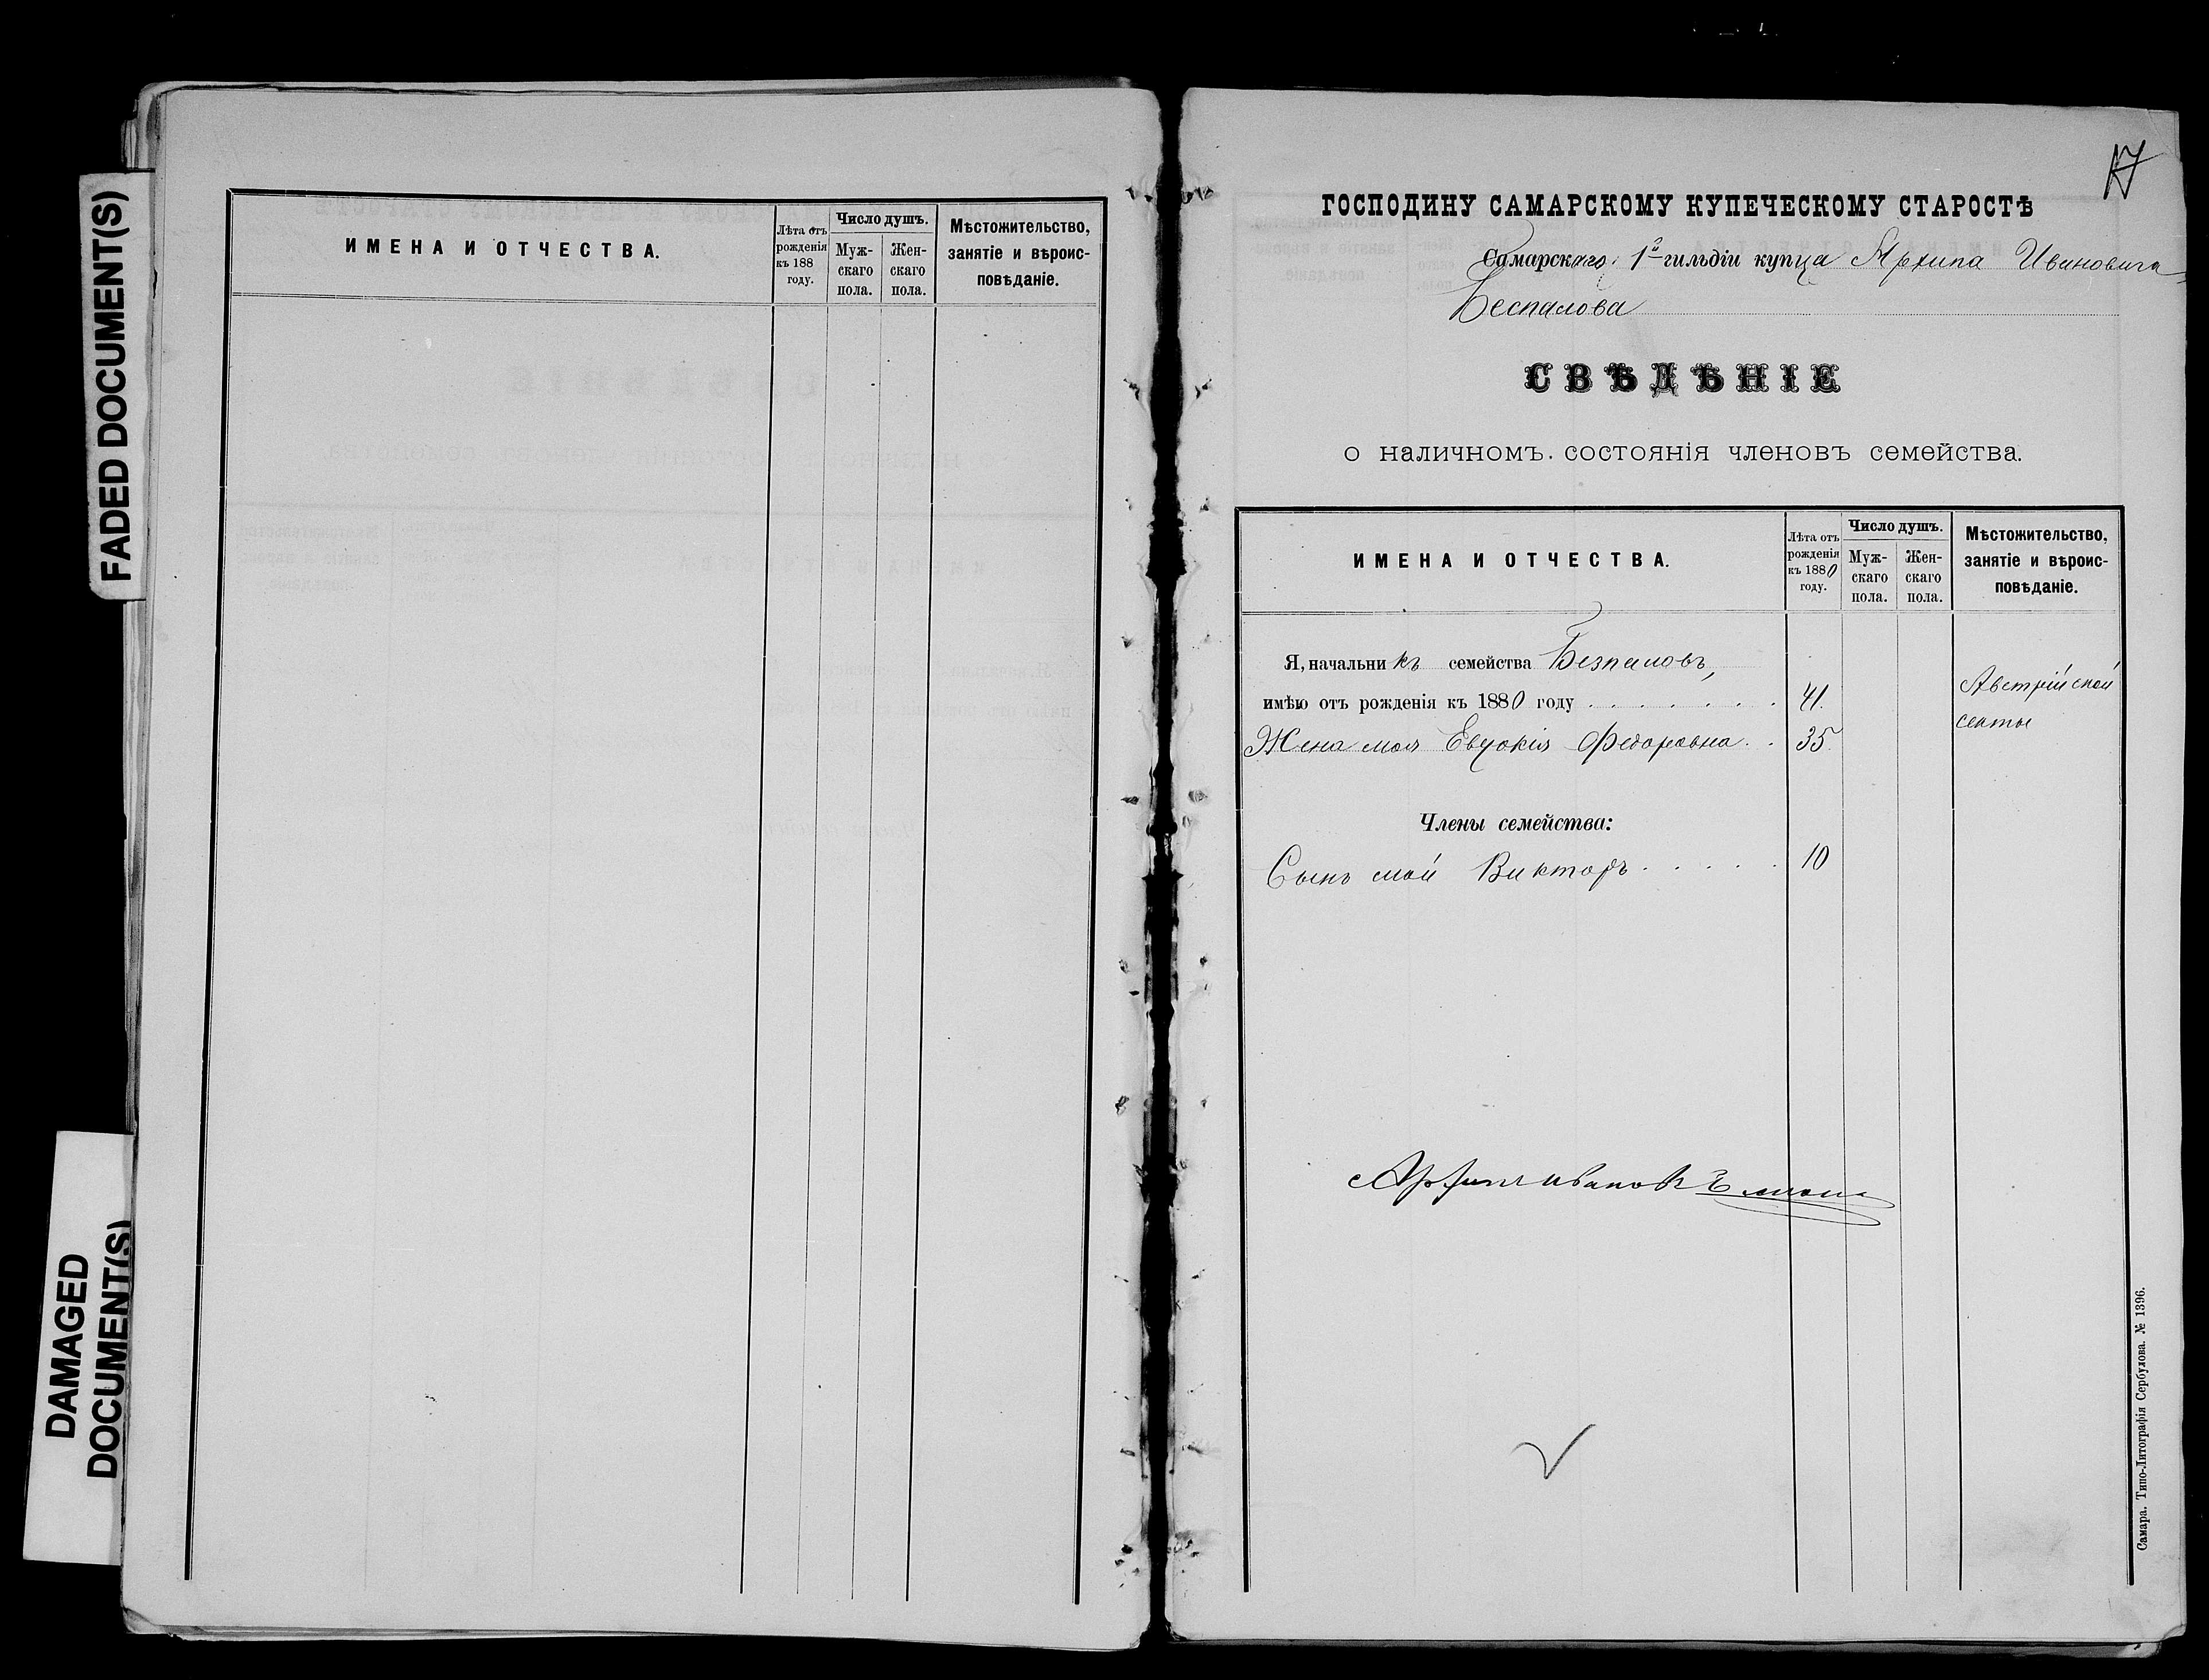 FADED DOCUMENT(S)
DAMAGED
DOCUMENT(S)
ИМЕНА И ОТЧЕСТВА.
Лѣта отъ
рожденія
къ 188
году.
Число душъ.
Муж-
скаго
пола.
Жен-
скаго
пола.
Мѣстожительство,
занятіе и вѣроис-
повѣданіе.
17
ГОСПОДИНУ САМАРСКОМУ КУПЕЧЕСКОМУ СТАРОСТѢ
Самарскаго 1й гильдіи купца Архипа Ивановича
Беспалова
СВѢДѢНІЕ
о наличномъ состоянія членовъ семейства.
ИМЕНА И ОТЧЕСТВА.
Лѣта отъ
рожденія
къ 1880
году.
Число душъ.
Муж-
скаго
пола.
Жен-
скаго
пола.
Мѣстожительство,
занятіе и вѣроис-
повѣданіе.
Я, начальникъ семейства Безпаловъ,
имѣю отъ рожденія къ 1880 году . . . . . . . 41.
Австрійской
секты
Жена моя Евдокія Федоровна . . 35.
Члены семейства:
Сынъ мой Викторъ . . . . . 10
Архипъ Ивановъ
Самара. Типо-Литографія Сербулова. № 1396.